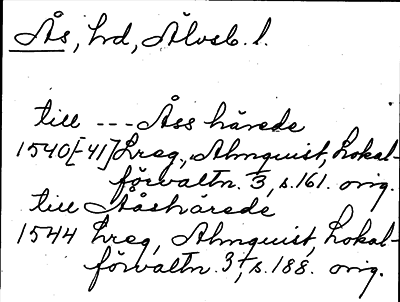 Ås, hrd, Älvsb. l.
till --- Åss härede
1540[-41] Lreg., Almquist, Lokal-
förvaltn. 3, s. 161. orig.
till Ååshärede
1544 Lreg, Almquist, Lokal-
förvaltn. 3, s. 188. orig.